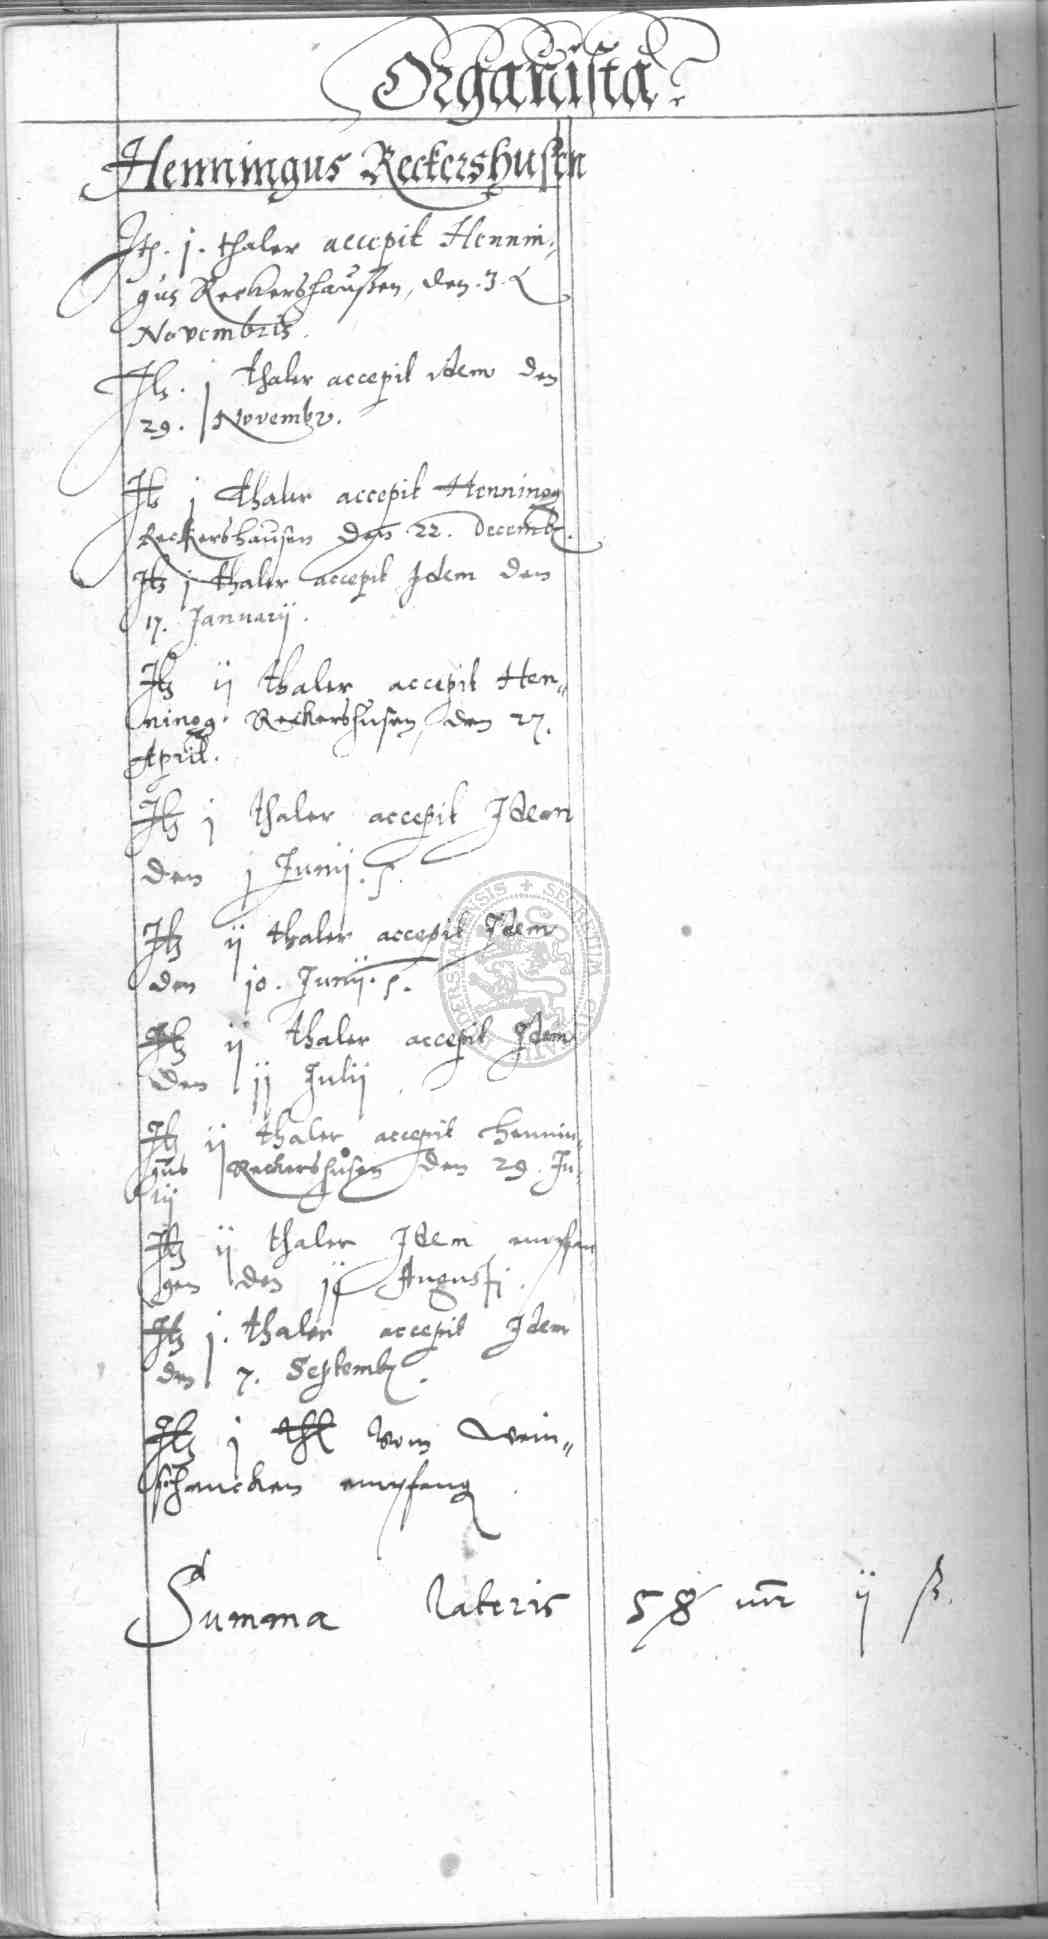 Organista
Henningus Reckershusen
Itē. j. thaler accepit Hennin,
gus Reckershaußen, den. 3.
Novembris.
Itz. j thaler accepit idem den
29. Novembr.
Itz j thaler accepit Henning
Reckershausen den 22. Decemb.
Itz j thaler accepit Idem den
17. Januarij.
Itz ij thaler accepit Hen„
ning. Reckershusen, den 27.
April.
Itz j thaler accepit Idem
den j Junij.
Itz ij thaler accepit Idem
den 10. Junij.
Itz ij thaler accepit Idem
den jj Julij
Itz ij thaler accepit Hennin„
gus Reckershusen den 29. Ju„
lij
Itz ij thaler Idem empfan
gen den jj Augusti.
Itz j. thaler accepit Idem
den 7. Septemb.
Itz j thl vom Wein„
schencken empfang
Summa lateris 58 mr ij ß.
SECRETUM